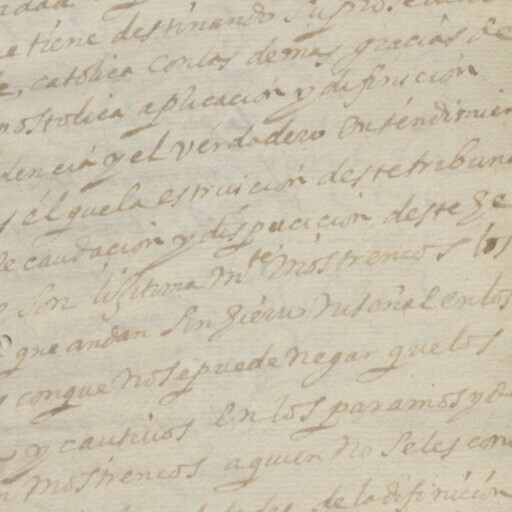 e tiene destinando su
catolica conlas demas gracias de
postolica aplicación y difinición
dencia y el verdadero entendimien
s el quela estruición destetribuna
Recaudación y dispucición deste Ze
son lixitima mte mostrencos los
que andan sin hierro niseñal enlos
conque nosepuede negar quelos
y cautivos en los paramos y
mostrencos aquien no seles con
deladifinición